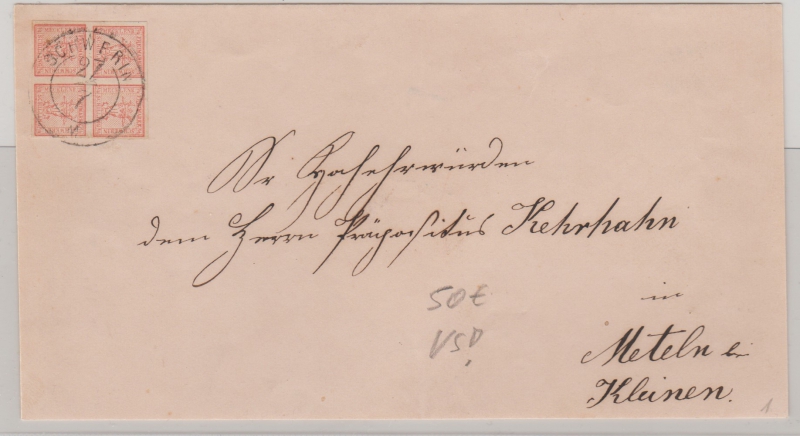 SCHWERIN
27
7
Sr Hochehrwürden
dem Herrn Präpositus Kehrhahn
in
Meteln bei
Kleinen.
50€
1